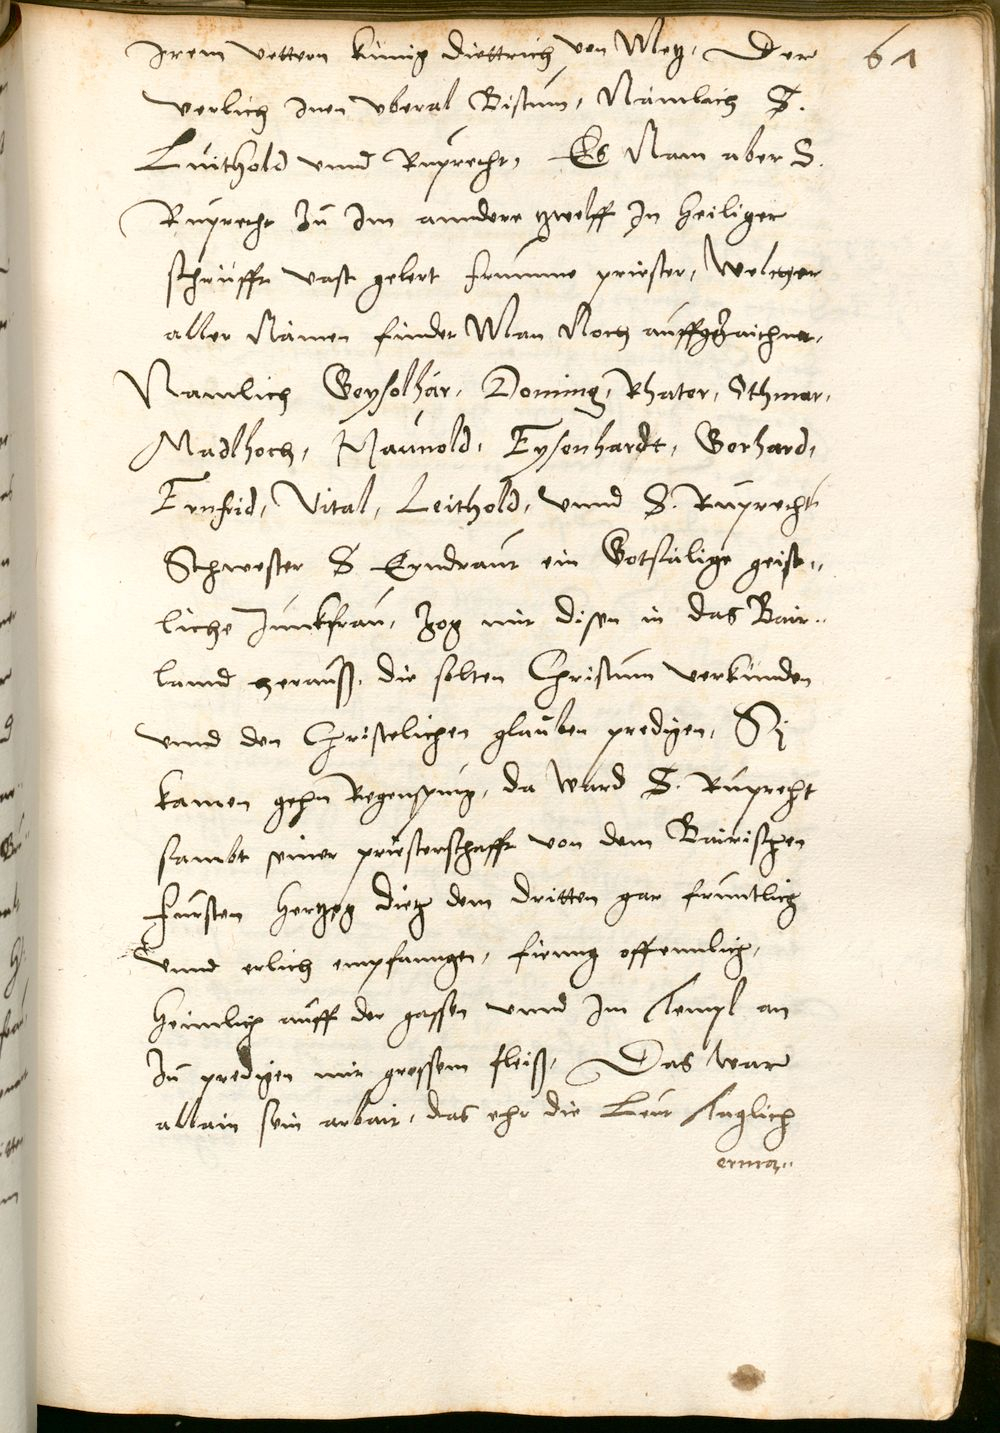 Irem vettern künig diettrich von Metz, Der 61
verlich inen vberal Bistum, Nämlich S.
Luithold vnnd Ruprecht, Es Nam aber S.
Ruprecht Zu Im anndere zwelff In heiliger
schrifft vast gelert frumme priester, Welcher
aller Namen findet Man Noch auffgezaichnet,
Namlich Geysolhar, Doming, Rhater, Ithmar,
Madlhoch, Naunold, Eysenhardt, Gerhard,
Ernfrid, Vital, Leithold, vnnd S. Ruprecht
Schwester S Eyndraut ein Gotsälige geist„
liche Junkfrau, Zog mit disen in das Bair„
lannd herauß, die solten Christum verkünden
vnnd den Christelichen glauben predigen, Si
kamen gehn Regenspurg, da ward S. Ruprecht
sambt seiner priesterschafft von dem Bairischen
fursten hertzog dietz dem dritten gar fruntlich
vnnd erlich empfanngen, fienng offennlich,
heimlich auff der gassen vnnd Im Templ an
Zu predigen mit grossem fleiß, Das war
allain sein arbait, das ehr die Leut taglich
erma„